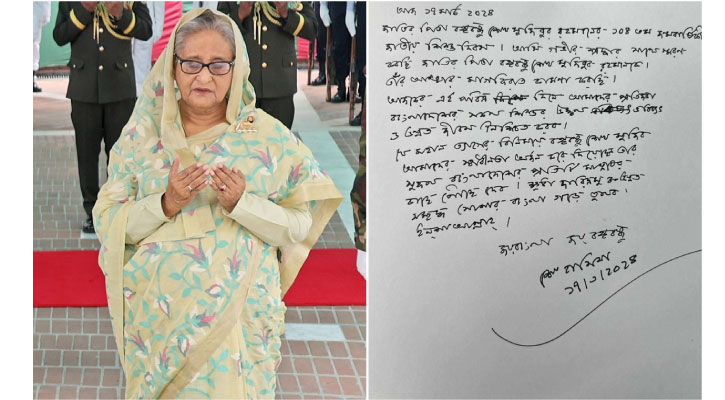 আজ ১৭ মার্চ ২০২৪
জাতির পিতা বঙ্গবন্ধু শেখ মুজিবুর রহমানের ১০৪ তম জন্মবার্ষিকী
জাতীয় শিশু দিবস। আমি গভীর শ্রদ্ধার সাথে স্মরণ
করছি জাতির পিতা বঙ্গবন্ধু শেখ মুজিবুর রহমানকে।
তাঁর আত্মার মাগফিরাত কামনা করছি।
আজকের এই পবিত্র দিনে আমাদের প্রতিজ্ঞা
বাংলাদেশের সকল শিশুর উজ্জ্বল ভবিষ্যৎ
ও উন্নত জীবন নিশ্চিত করব।
যে মহান ত্যাগের বিনিময়ে বঙ্গবন্ধু শেখ মুজিব
আমাদের স্বাধীনতা অর্জন করে দিয়েছেন তার
সুফল বাংলাদেশের প্রতিটি মানুষের
কাছে পৌঁছে দেব। ক্ষুধা দারিদ্র্যমুক্ত উন্নত
সমৃদ্ধ সোনার বাংলা গড়ে তুলব।
ইনশাআল্লাহ্।
জয় বাংলা জয় বঙ্গবন্ধু
শেখ হাসিনা
১৭/৩/২০২৪